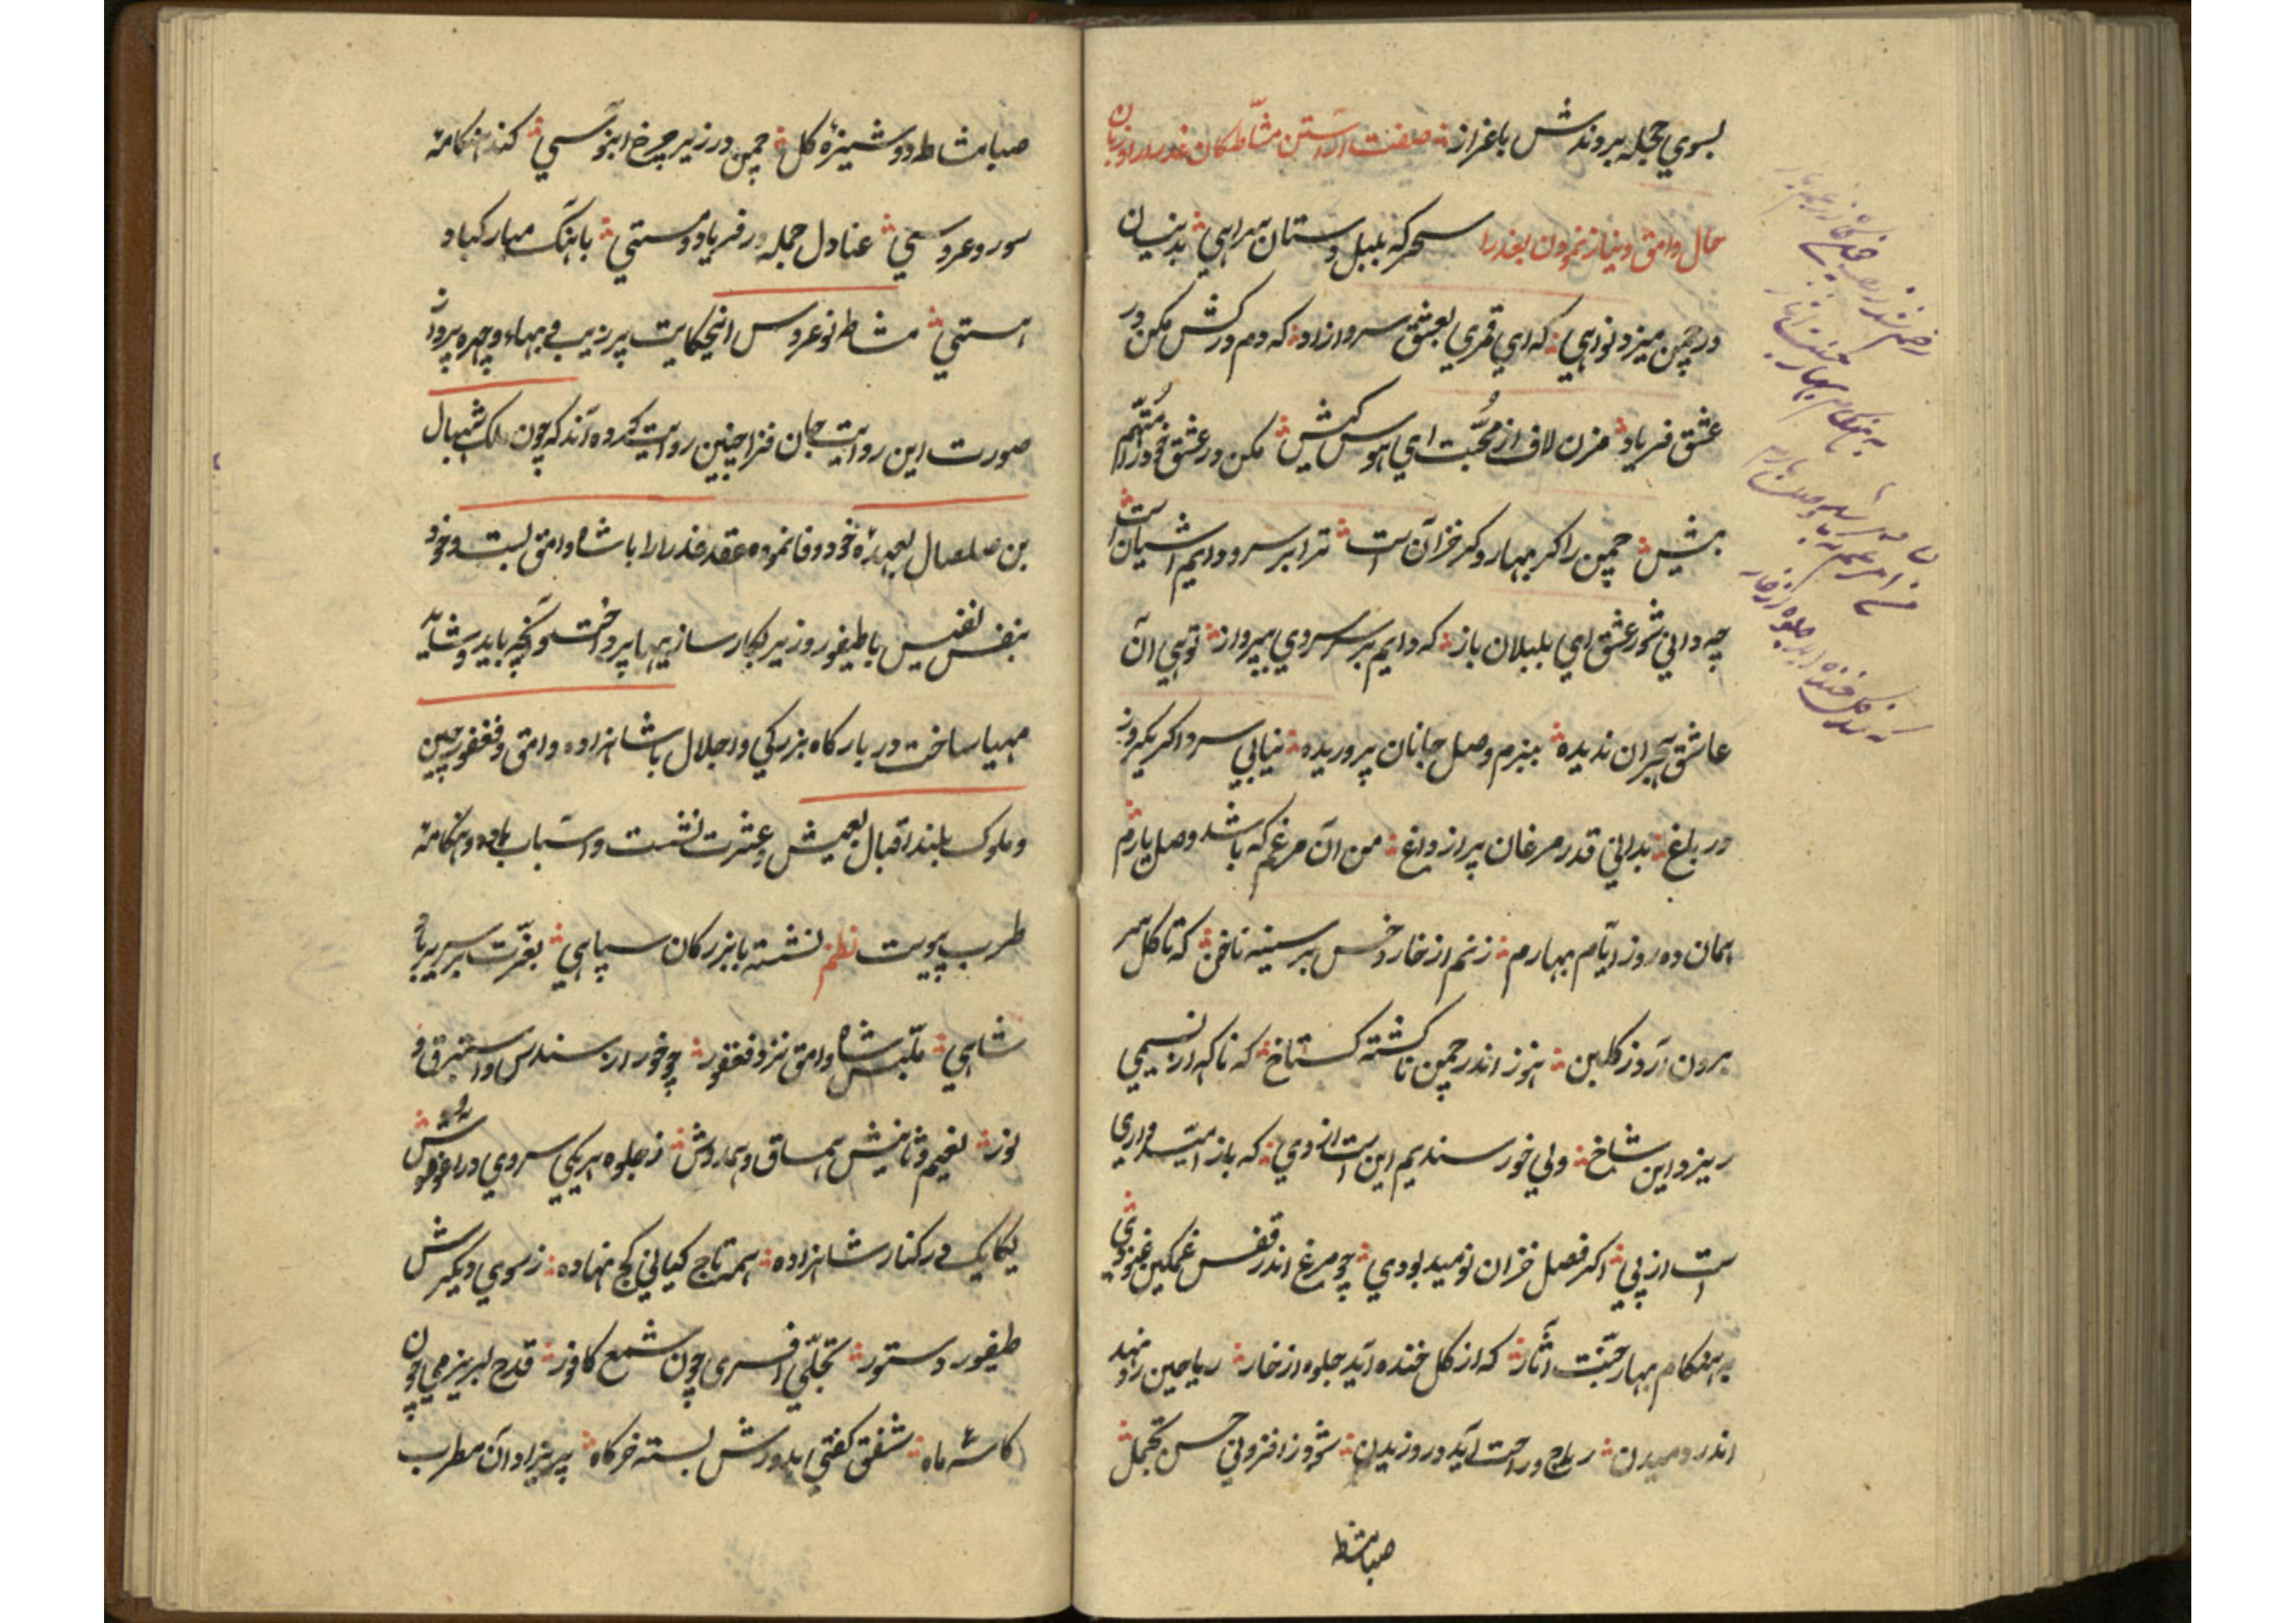 بسوي حجله بردندش باعزاز صفت آراستن مشاطكان عذرا را و زبان
حال وامق و نياز نمودن بعذرا سحركه بلبل دستان سرايي بدينسان
در چمن ميزد نوايي كه اي قمري بعشق سرو ازاد كه دم دركش مكن در
عشق فرياد مزن لاف از محبت اي هوس كيش مكن در عشق خود را متهم
بيش چمن را كر بهار و كر خزان است ترا بر سرو دايم اشيان است
چه داني شور عشق اي بلبلان باز كه دايم بر سر سروي بپرواز تويي ان
عاشق هجران نديده ببزم وصل جانان پروريده نيابي سرو اكر يكروز
در باغ بداني قدر مرغان پر از داغ من ان مرغم كه باشد وصل يارم
همان ده روز ايام بهارم زنم از خار و خس بر سينه ناخن كه تا كل سر
برون آرد ز كلبن هنوز اندر چمن ناكشته كستاخ كه ناكه از نسيمي
ريزد اين شاخ ولي خورسنديم اين است از وي كه باز اميدواري
است از پي اكر فصل خزان نوميد بودي چو مرغ اندر قفس غمكين غنودي
به هنكام بهار جنت آثار كه از كل خنده آيد جلوه از خار رياحين رو نهد
اندر دميدن رياح در راحت آيد در وزيدن شود ز افزوني حسن تجمل
صبا مشاطه
صبا مشاطه دوشيزهٔ كل چمن در زير چرخ ابنوسي كند هنكامهٔ
سور و عروسي عنادل جمله در فرياد و مستي باهنك مباركباد
هستي مشاطه نوعروس اين حكايت پر زيب و بهاء و چهره پرداز
صورت اين روايت جان فزا چنين روايت كرده اند كه چون ملك شهبال
بن صلصال بعهد خود وفا نموده عقد عذرا را با شاه وامق بست و خود
بنفس نفيس با طيفور وزير بكار سازيها پرداخت و آنچه بايد و شايد
مهيا ساخت در باركاه بزركي و اجلال با شاهزاده وامق و فغفور چين
و ملوك بلند اقبال بعيش و عشرت نشست و اسباب باده و هنكامهٔ
طرب پيوست نظم نشسته با بزركان سپاهي بعزت بر سرير پادشاهي
ملبس شاه وامق نزد فغفور چو خور از سندس و استبرق و
نور نعيم و ثانيش همساق و همدوش ز جلوه هر يكي سروي در اغوش
يكايك در كنار شاهزاده همه تاج كياني كج نهاده ز سوي ديكرش
طيفور دستور تجلي افسري چون شمع كافور قدح لبريز مي چون
كاسهٔ ماه شفق كفتي بدورش بسته خركاه پريزادان مطرب